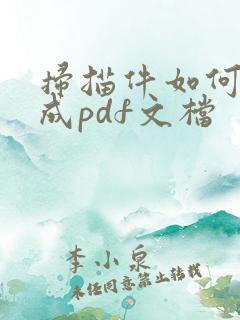 掃描件如何
成pdf文檔
李小泉
未经同意禁止转载